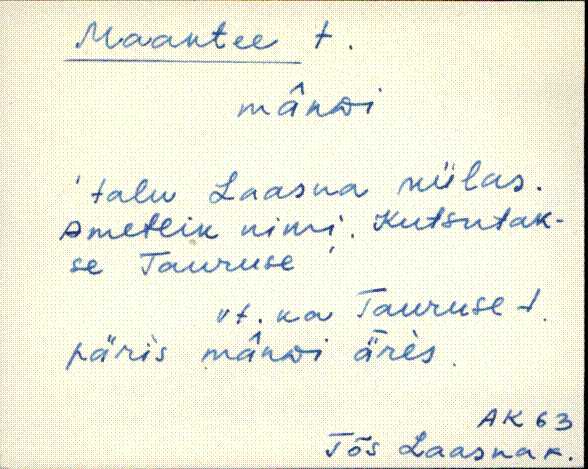 Maantee t.
mânᴅi
'talu Laasna külas.
Ametlik nimi. Kutsutak-
se Tauruse
vt. ka Tauruse t.
päris mânᴅi ārès.
AK 63
Tõs Laasna k.